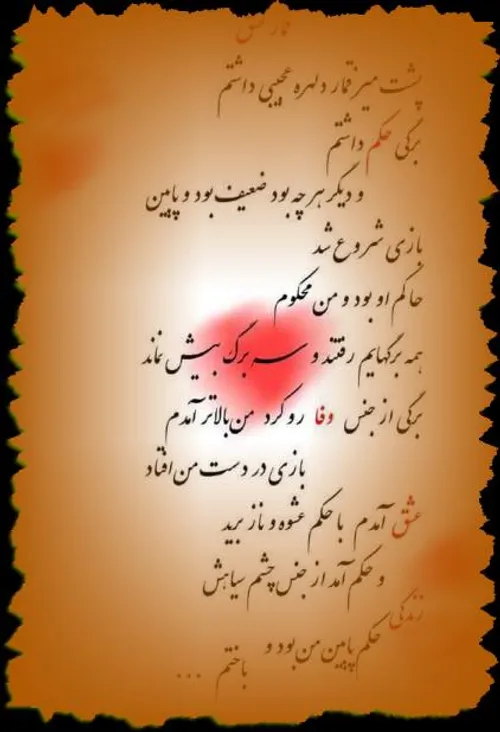 قمار عشق
پشت میز قمار دلهره عجیبی داشتم
برگی حکم داشتم
و دیگر هر چه بود ضعیف بود و پایین
بازی شروع شد
حاکم او بود و من محکوم
همه برگهایم رفتند و سه برگ بیش نماند
برگی از جنس وفا رو کرد من بالاتر آمدم
بازی در دست من افتاد
عشق آمدم با حکم عشوه و ناز برید
و حکم آمد از جنس چشم سیاهش
زندگی حکم پایین من بود و
باختم ...